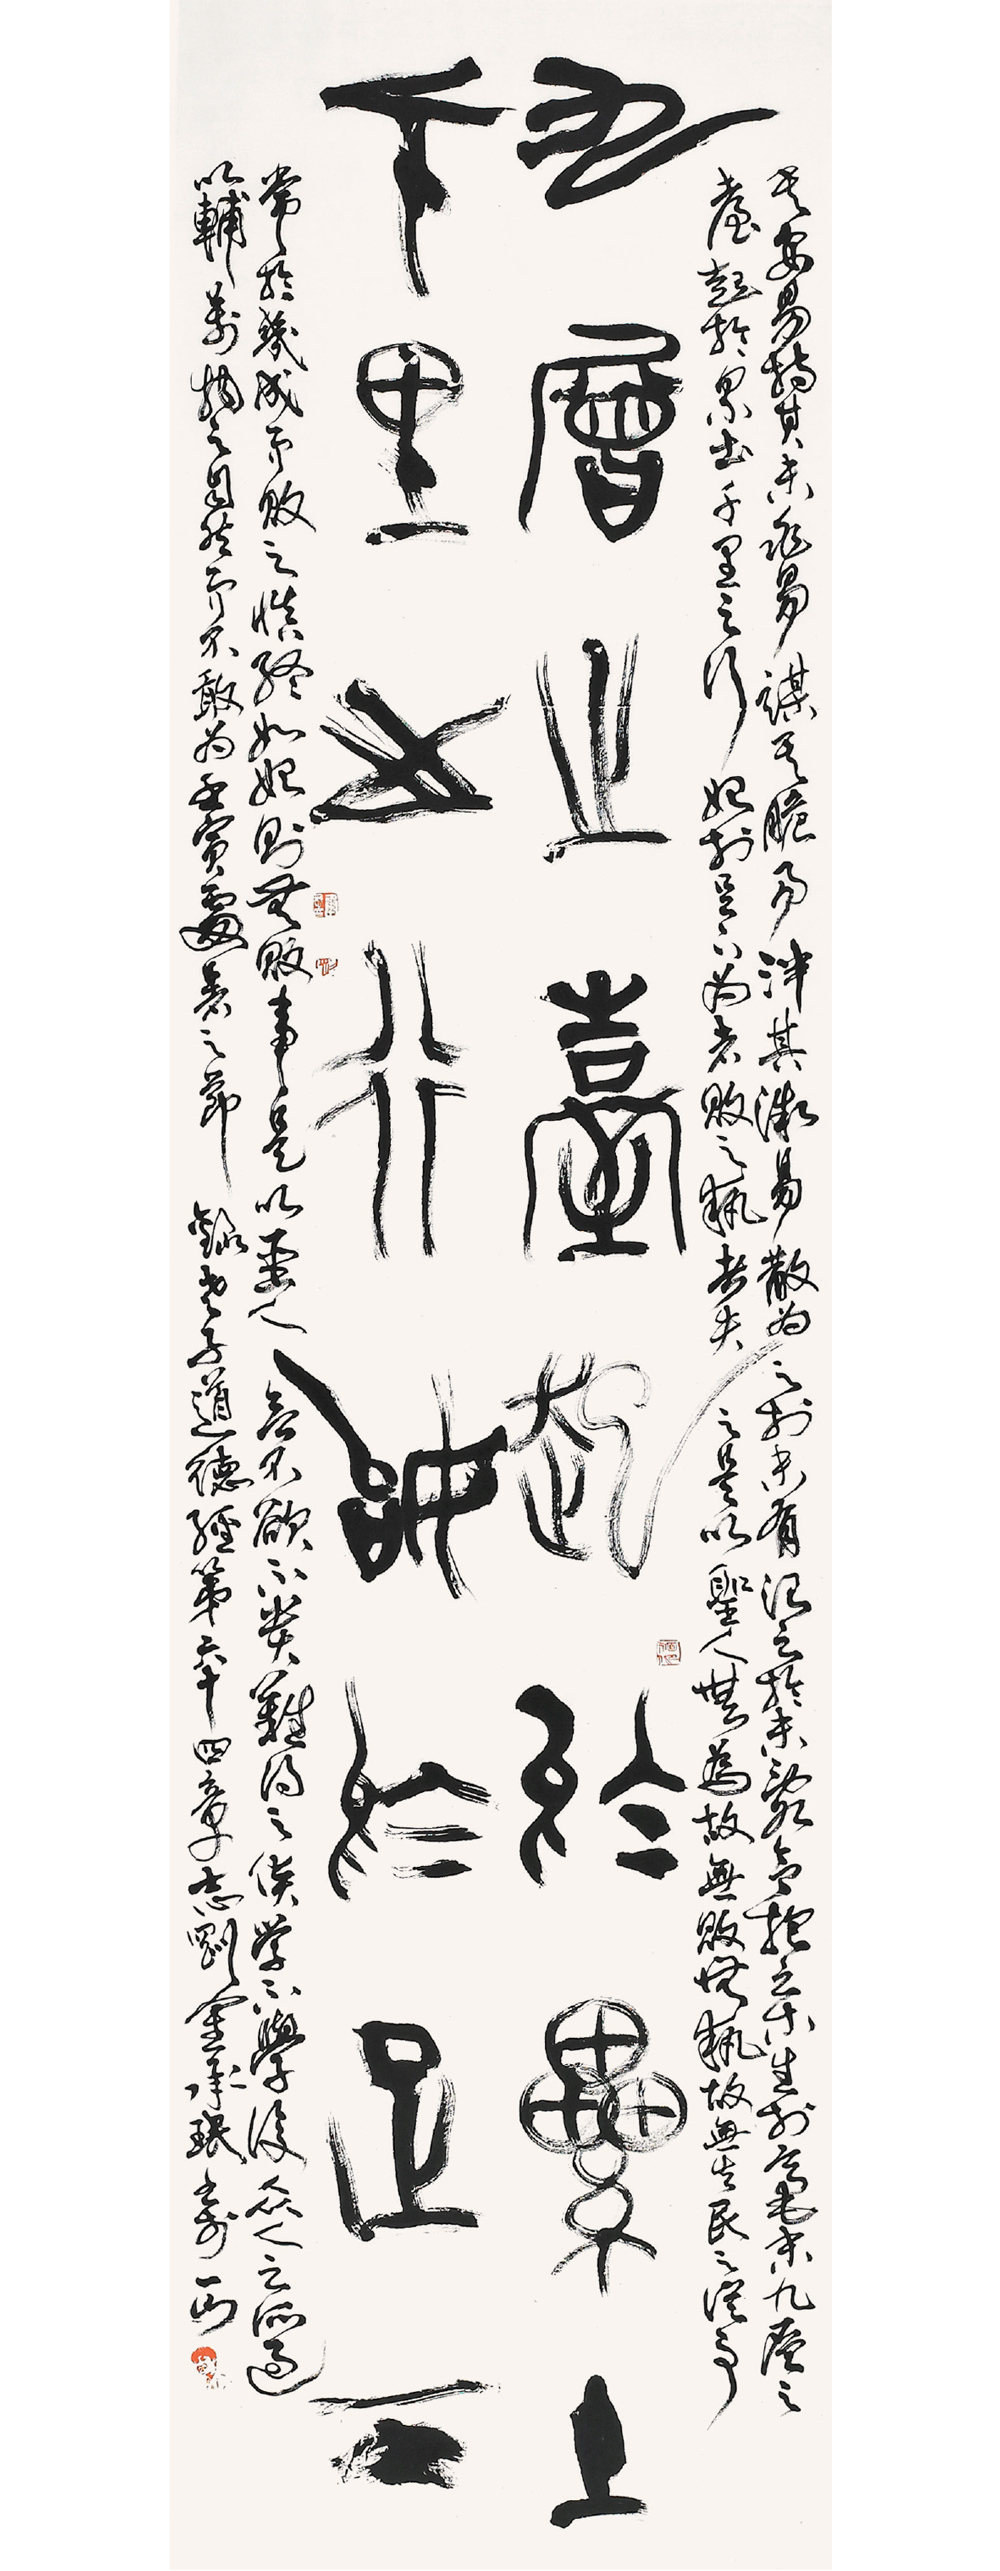 其安易持其未兆易謀其脆易泮其微易散為之於未有治之於未亂合抱之木生於毫末九層之
臺起於累土千里之行始於足下為者敗之執者失之是以聖人無為故無敗無執故無失民之從事
九層之臺起於累土
千里之行始於足下
常於幾成而敗之慎終如始則無敗事是以聖人欲不欲不貴難得之貨學不學復眾人之所過
以輔萬物之自然而不敢為壬寅處暑之節錄老子道德經第六十四章